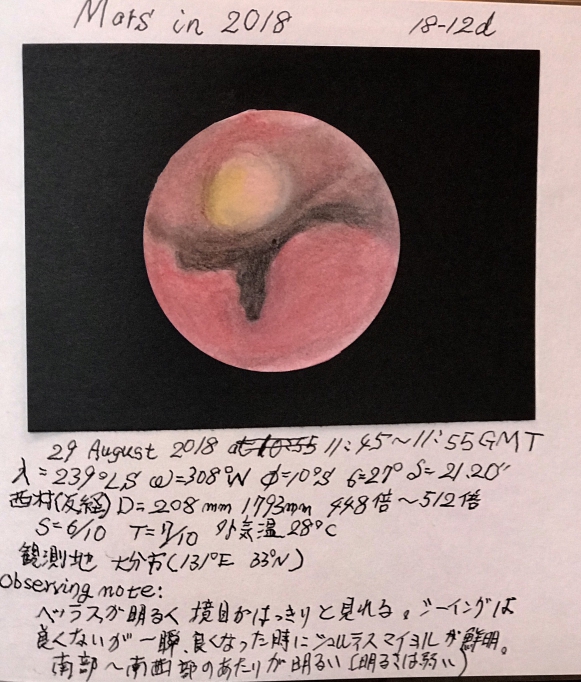 Mars in 2018 18-12d
29 August 2018 at 10:55 11:45～11:55 GMT
λ=239°LS ω=308°W φ=10°S δ=21.20"
西村(反経) D=208mm 1793mm 448倍～512倍
S=6/10 T=7/10 外気温 28°C
観測地 大分市(131°E 33°N)
Observing note:
ヘラスが明るく 境目がはっきりと見れる。シーイングは
良くないが一瞬、良くなった時にシュルティス マイヨルが鮮明。
南部～南西部のあたりが明るい(明るさは弱い)